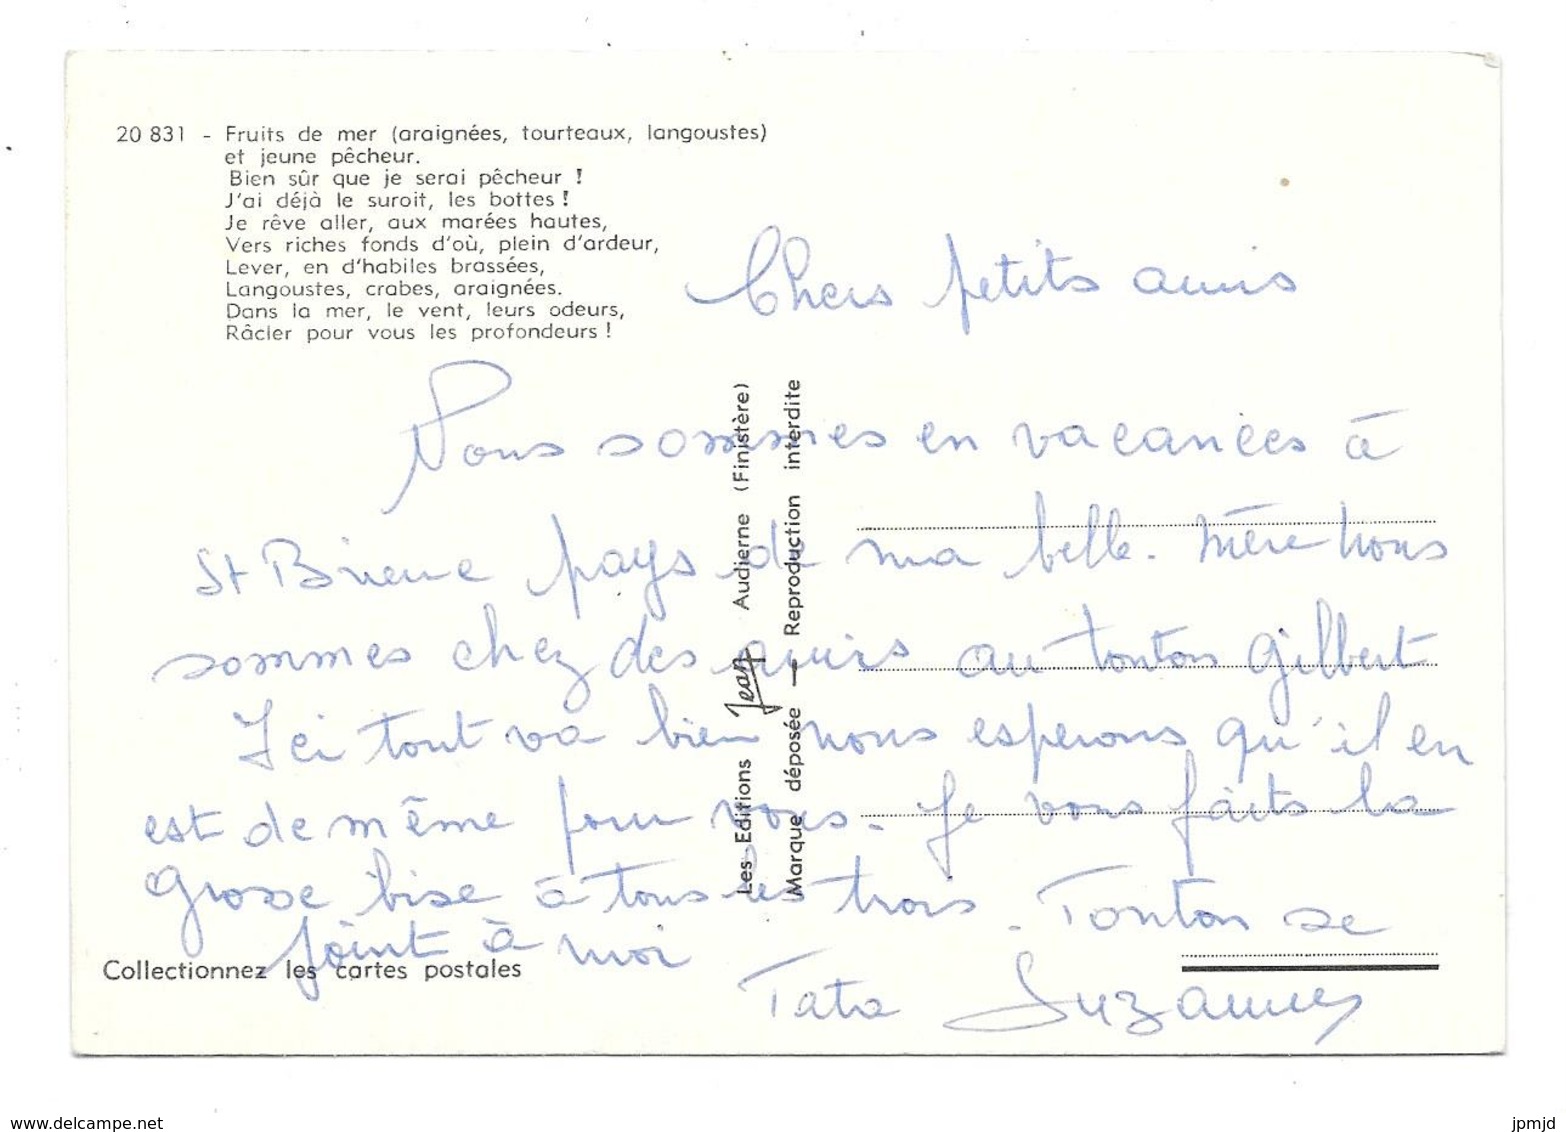 20 831 - Fruits de mer (araignées, tourteaux, langoustes)
et jeune pêcheur.
Bien sûr que je serai pêcheur !
J'ai déjà le suroit, les bottes !
Je rêve aller, aux marées hautes,
Vers riches fonds d'où, plein d'ardeur,
Lever, en d'habiles brassées,
Langoustes, crabes, araignées.
Dans la mer, le vent, leurs odeurs,
Râcler pour vous les profondeurs !
Chers petits amis
Nous sommes en vacances à
St Brieuc pays de ma belle-mère nous
sommes chez des amis au tonton Gilbert
Ici tout va bien nous esperons qu'il en
est de même pour vous. Je vous faits la
grosse bise à tous les trois. Tonton se
joint à moi
Tata Suzanne
Les Editions Jean Audierne (Finistère)
Marque déposée — Reproduction interdite
Collectionnez les cartes postales
www.delcampe.net
jpmjd